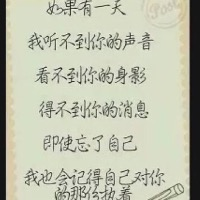 如果有一天
我听不到你的声音
看不到你的身影
得不到你的消息
即使忘了自己
我也会记得自己对你
的那份执着